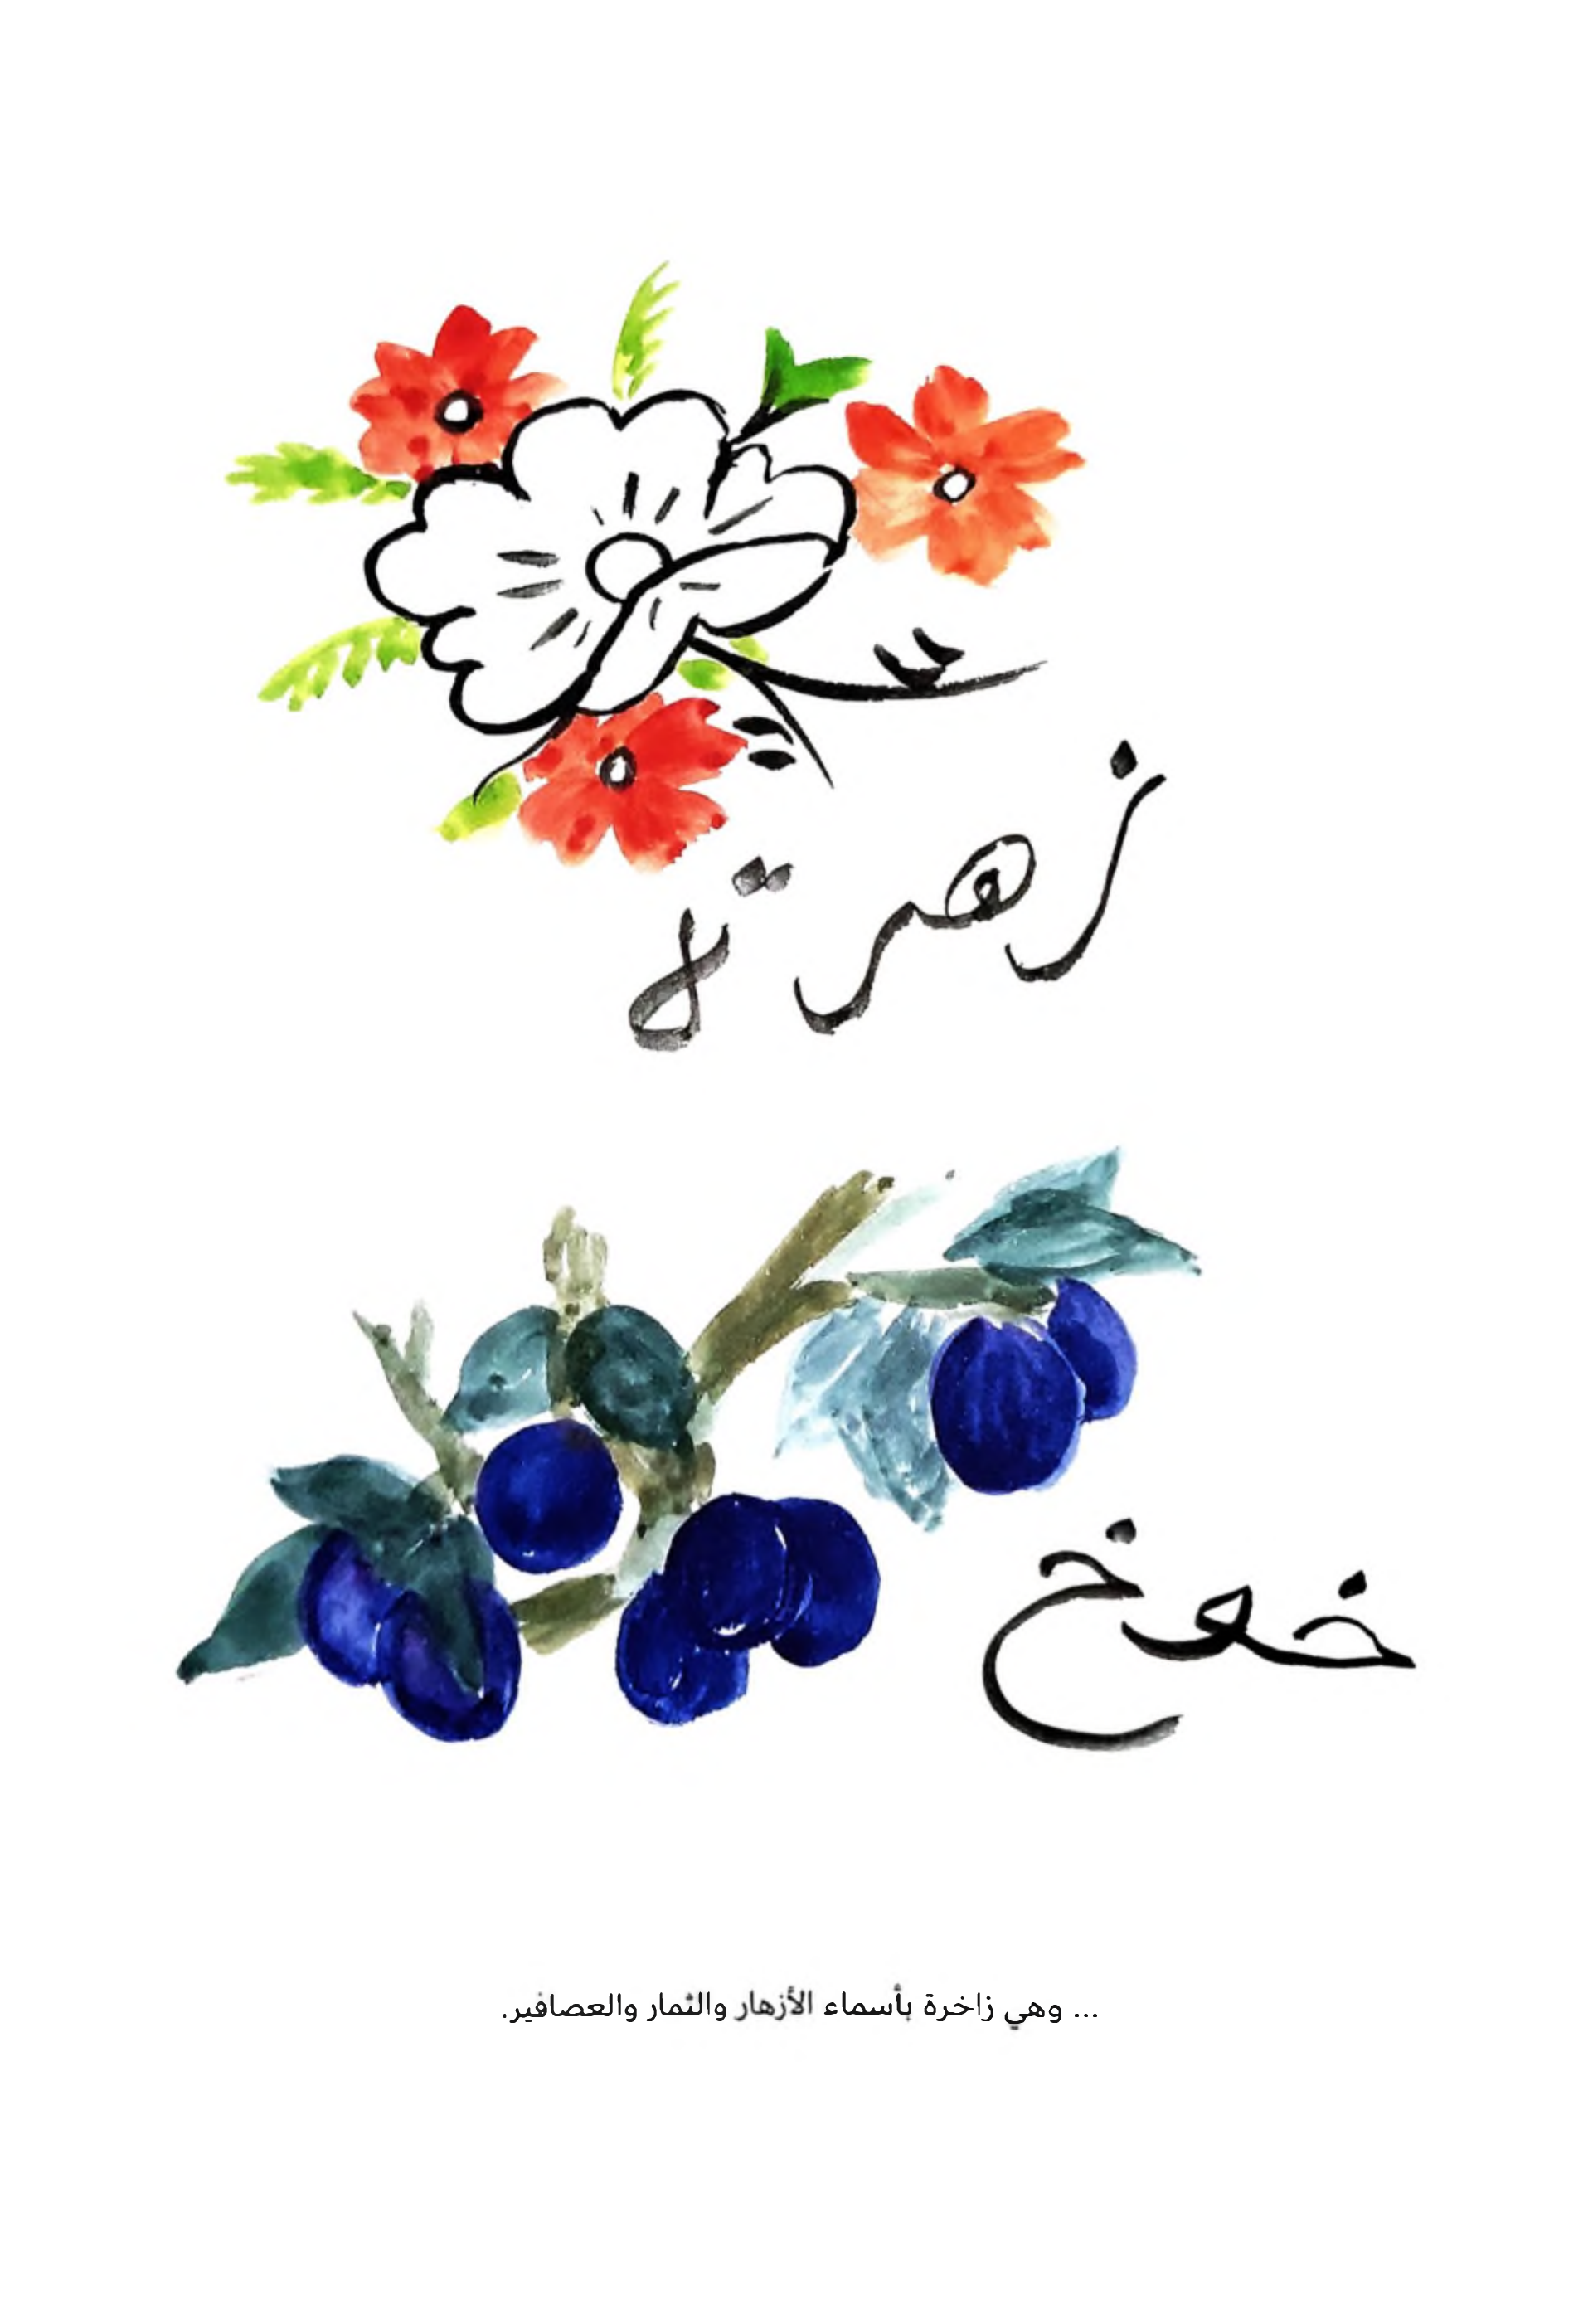 زهرة
خوخ
... وهي زاخرة بأسماء الأزهار والثمار والعصافير.